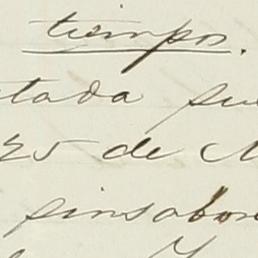 tiempos.
tada pu
25 de M
sinsabor